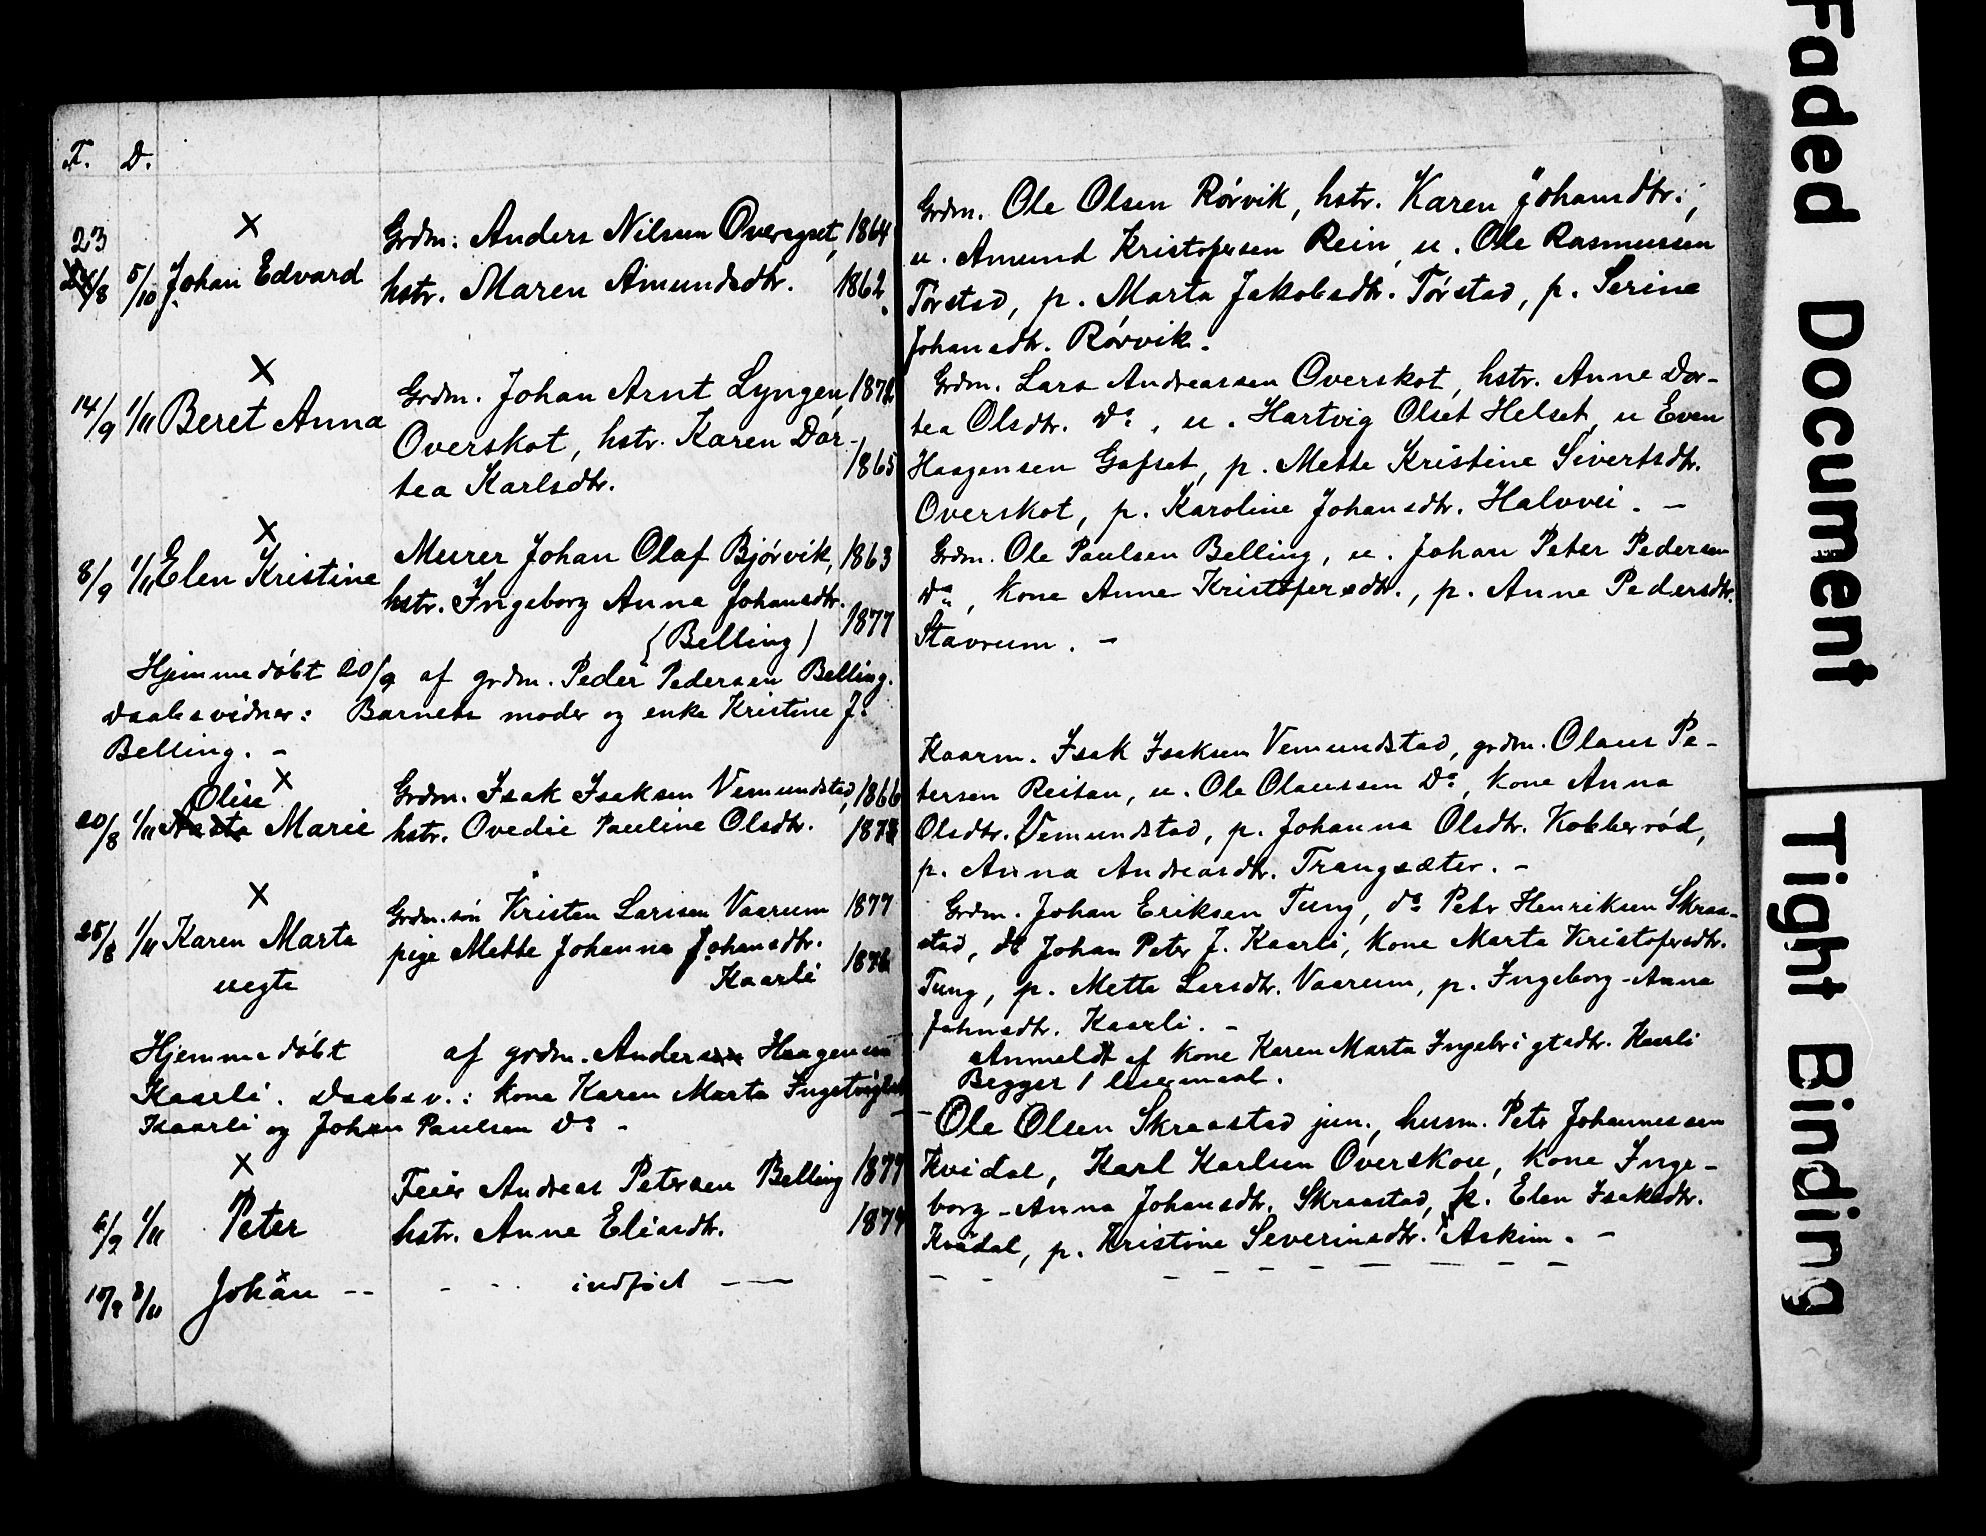 F. D.
×
23
24/8 5/10 Johan Edvard
Grdm. Anders Nilsen Overagset, 1864
hstr. Maren Amundsdtr. 1862.
×
14/9 1/11 Beret Anna
Grdm. Johan Arnt Lyngen, 1871
Overskot, hstr. Karen Dor-
tea Karlsdtr. 1865
×
8/9 1/11 Elen Kristine
Murer Johan Olaf Bjørvik, 1863
hstr. Ingeborg Anna Johansdtr. 1877
(Belling)
Hjemmedøbt 20/9 af grdm. Peder Pedersen Belling.
Daabsvidner: Barnets moder og enke Kristine J.
Belling. –
Olise ×
20/8 1/11 Marie
Grdm. Isak Isaksen Vemundstad, 1866
hstr. Ovedie Pauline Olsdtr.
×
25/8 1/11 Karen Marta
uegte
Grdm.søn Kristen Larsen Vaarum 1877
pige Mette Johanna Johansdtr.
Kaarli 1876
Hjemmedøbt af grdm. Anders Haagensen
Kaarli. Daabsv.: kone Karen Marta Ingebrigtsdtr.
Kaarli og Johan Paulsen Do –
×
6/9 1/11 Peter
Feier Andreas Petersen Belling 1877
hstr. Anne Eliasdtr. 1874
×
10/9 8/11 Johan -- - -- indført — —
Grdm. Ole Olsen Rørvik, hstr. Karen Johansdtr.,
u. Amund Kristofersen Rein, u. Ole Rasmussen
Tørstad, p. Marta Jakobsdtr. Tørstad, p. Serine
Johansdtr. Rørvik.
Grdm. Lars Andreassen Overskot, hstr. Anne Dor-
tea Olsdtr. Do, u. Hartvig Olset Helset, u Even
Haagensen Gafset, p. Mette Kristine Sivertsdtr.
Overskot, p. Karoline Johansdtr. Halvvei. –
Grdm. Ole Paulsen Belling, u. Johan Peter Pedersen
Do, kone Anne Kristofersdtr., p. Anne Pedersdtr.
Stavrum. –
Kaarm. Isak Isaksen Vemundstad, grdm. Olaus Pe-
tersen Reitan, u. Ole Olaussen Do, kone Anna
Olsdtr. Vemundstad, p. Johanna Olsdtr. Kobberrød,
p. Anna Andreasdtr. Trangsæter. –
Grdm. Johan Eriksen Tung, do Peter Henriksen Skraa-
stad, do Johan Peter J. Kaarli, kone Marta Kristofersdtr.
Tung, p. Mette Larsdtr. Vaarum, p. Ingeborg-Anna
Johnsdtr. Kaarli. –
Anmeldt af kone Karen Marta Ingebrigtsdtr. Kaarli
Begges 1 leiermaal.
– Ole Olsen Skraastad jun., husm. Peter Johannessen
Kvidal, Karl Karlsen Overskou, kone Inge-
borg-Anna Johansdtr. Skraastad, p. Elen Isaksdtr.
Kvidal, p. Kristine Severinsdtr. Askim. –
Faded Document
Tight Binding